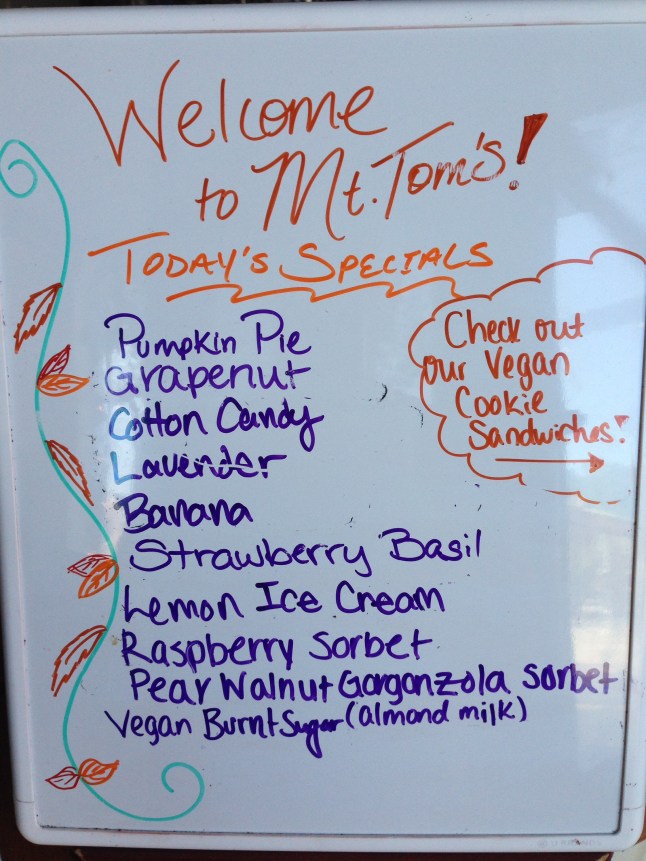 Welcome
to Mt. Tom's!
TODAY'S SPECIALS
Pumpkin Pie
Grapenut
Cotton Candy
Lavender
Banana
Strawberry Basil
Lemon Ice Cream
Raspberry Sorbet
Pear Walnut Gorgonzola Sorbet
Vegan Burnt Sugar (almond milk)
Check out
our Vegan
Cookie
Sandwiches!